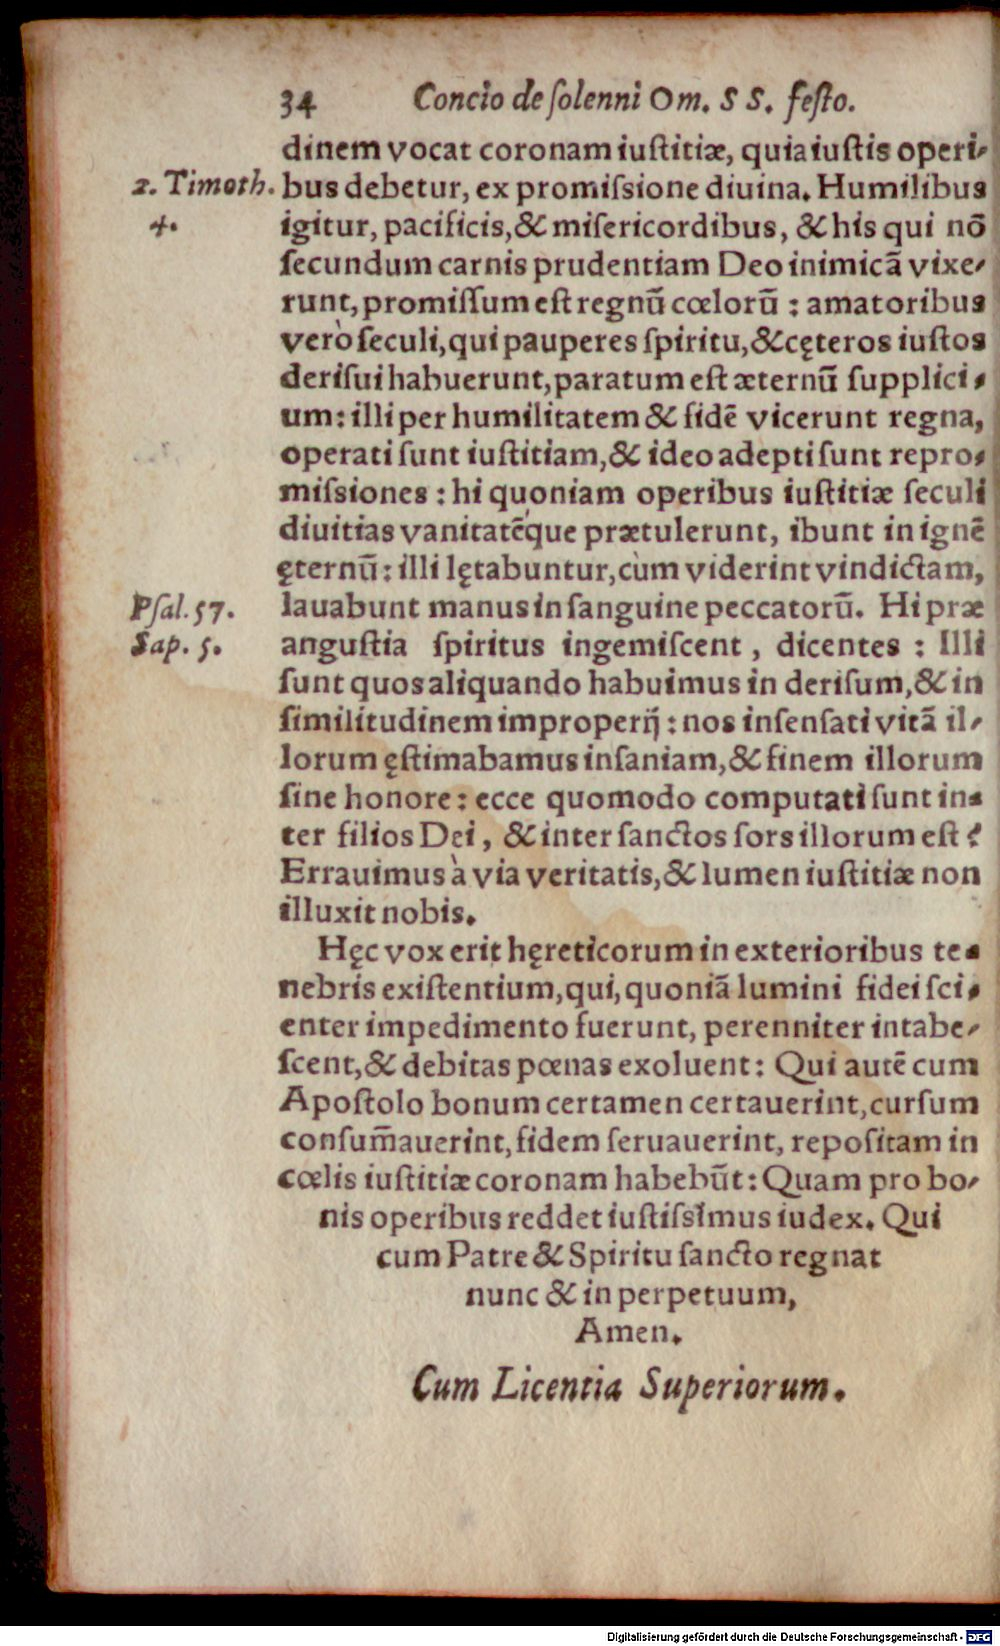 34 Concio de ſolenni Om. S S. feſto.
dinem vocat coronam iuſtitiæ, quia iuſtis operi-
2. Timoth. bus debetur, ex promiſsione diuina. Humilibus
4. igitur, pacificis, & miſericordibus, & his qui nõ
ſecundum carnis prudentiam Deo inimicã vixe-
runt, promiſſum est regnũ cœlorũ : amatoribus
verò ſeculi, qui pauperes ſpiritu, & cęteros iuſtos
deriſui habuerunt, paratum eſt æternũ ſupplici-
um: illi per humilitatem & fidẽ vicerunt regna,
operati ſunt iuſtitiam, & ideo adepti ſunt repro-
miſsiones : hi quoniam operibus iuſtitiæ ſeculi
diuitias vanitatẽque prætulerunt, ibunt in ignẽ
ęternũ: illi lętabuntur, cùm viderint vindictam,
Pſal. 57. lauabunt manus in ſanguine peccatorũ. Hi præ
Sap. 5. anguſtia ſpiritus ingemiſcent, dicentes : Illi
ſunt quos aliquando habuimus in deriſum, & in
ſimilitudinem improperij : nos inſenſati vitã il-
lorum ęſtimabamus inſaniam, & finem illorum
ſine honore: ecce quomodo computati ſunt in-
ter filios Dei, & inter ſanctos ſors illorum eſt?
Errauimus à via veritatis, & lumen iuſtitiæ non
illuxit nobis.
Hęc vox erit hęreticorum in exterioribus te-
nebris exiſtentium, qui, quoniã lumini fidei ſci-
enter impedimento fuerunt, perenniter intabe-
ſcent, & debitas pœnas exoluent: Qui autẽ cum
Apoſtolo bonum certamen certauerint, curſum
conſum̃auerint, fidem ſeruauerint, repoſitam in
cœlis iuſtitiæ coronam habebũt: Quam pro bo-
nis operibus reddet iuſtiſsimus iudex. Qui
cum Patre & Spiritu ſancto regnat
nunc & in perpetuum,
Amen.
Cum Licentia Superiorum.
Digitalisierung gefördert durch die Deutsche Forschungsgemeinschaft - DFG